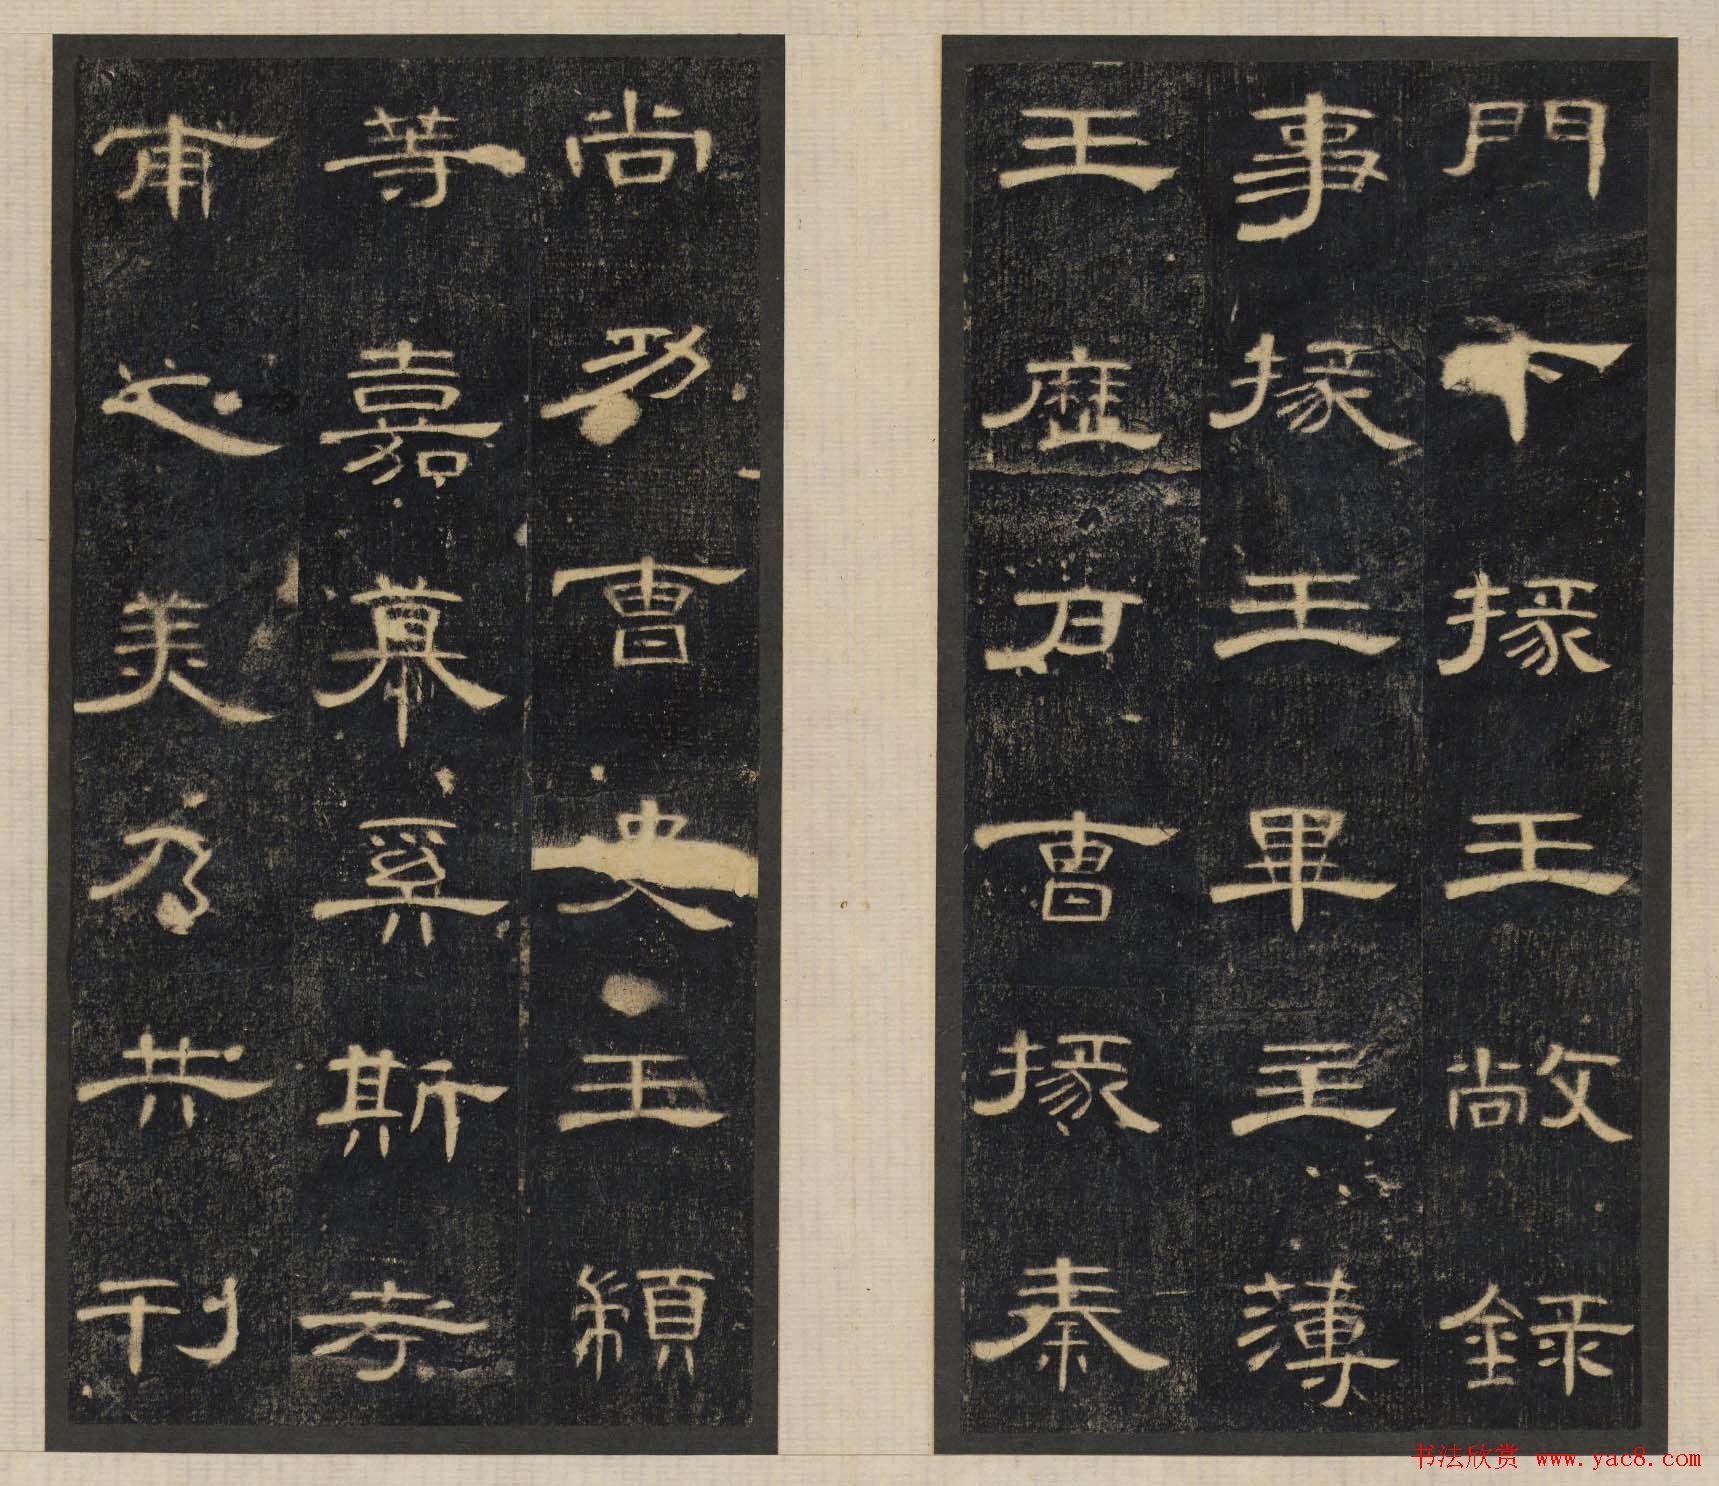 門下掾王敞録
事掾王畢主薄
王歷戶曹掾秦
尚功曹史王顓
等嘉慕奚斯考
甫之美乃共刊
书法欣赏 www.yac8.com